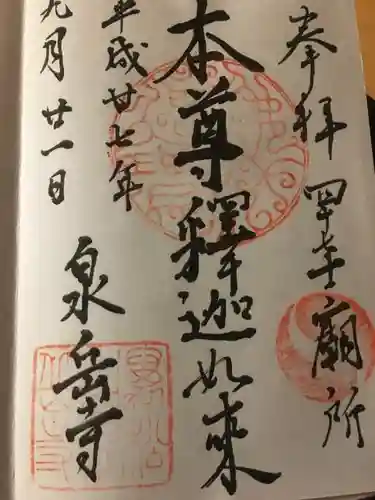 奉拝 廟所
本尊釋迦如來
平成廿七年
九月廿一日
泉岳寺